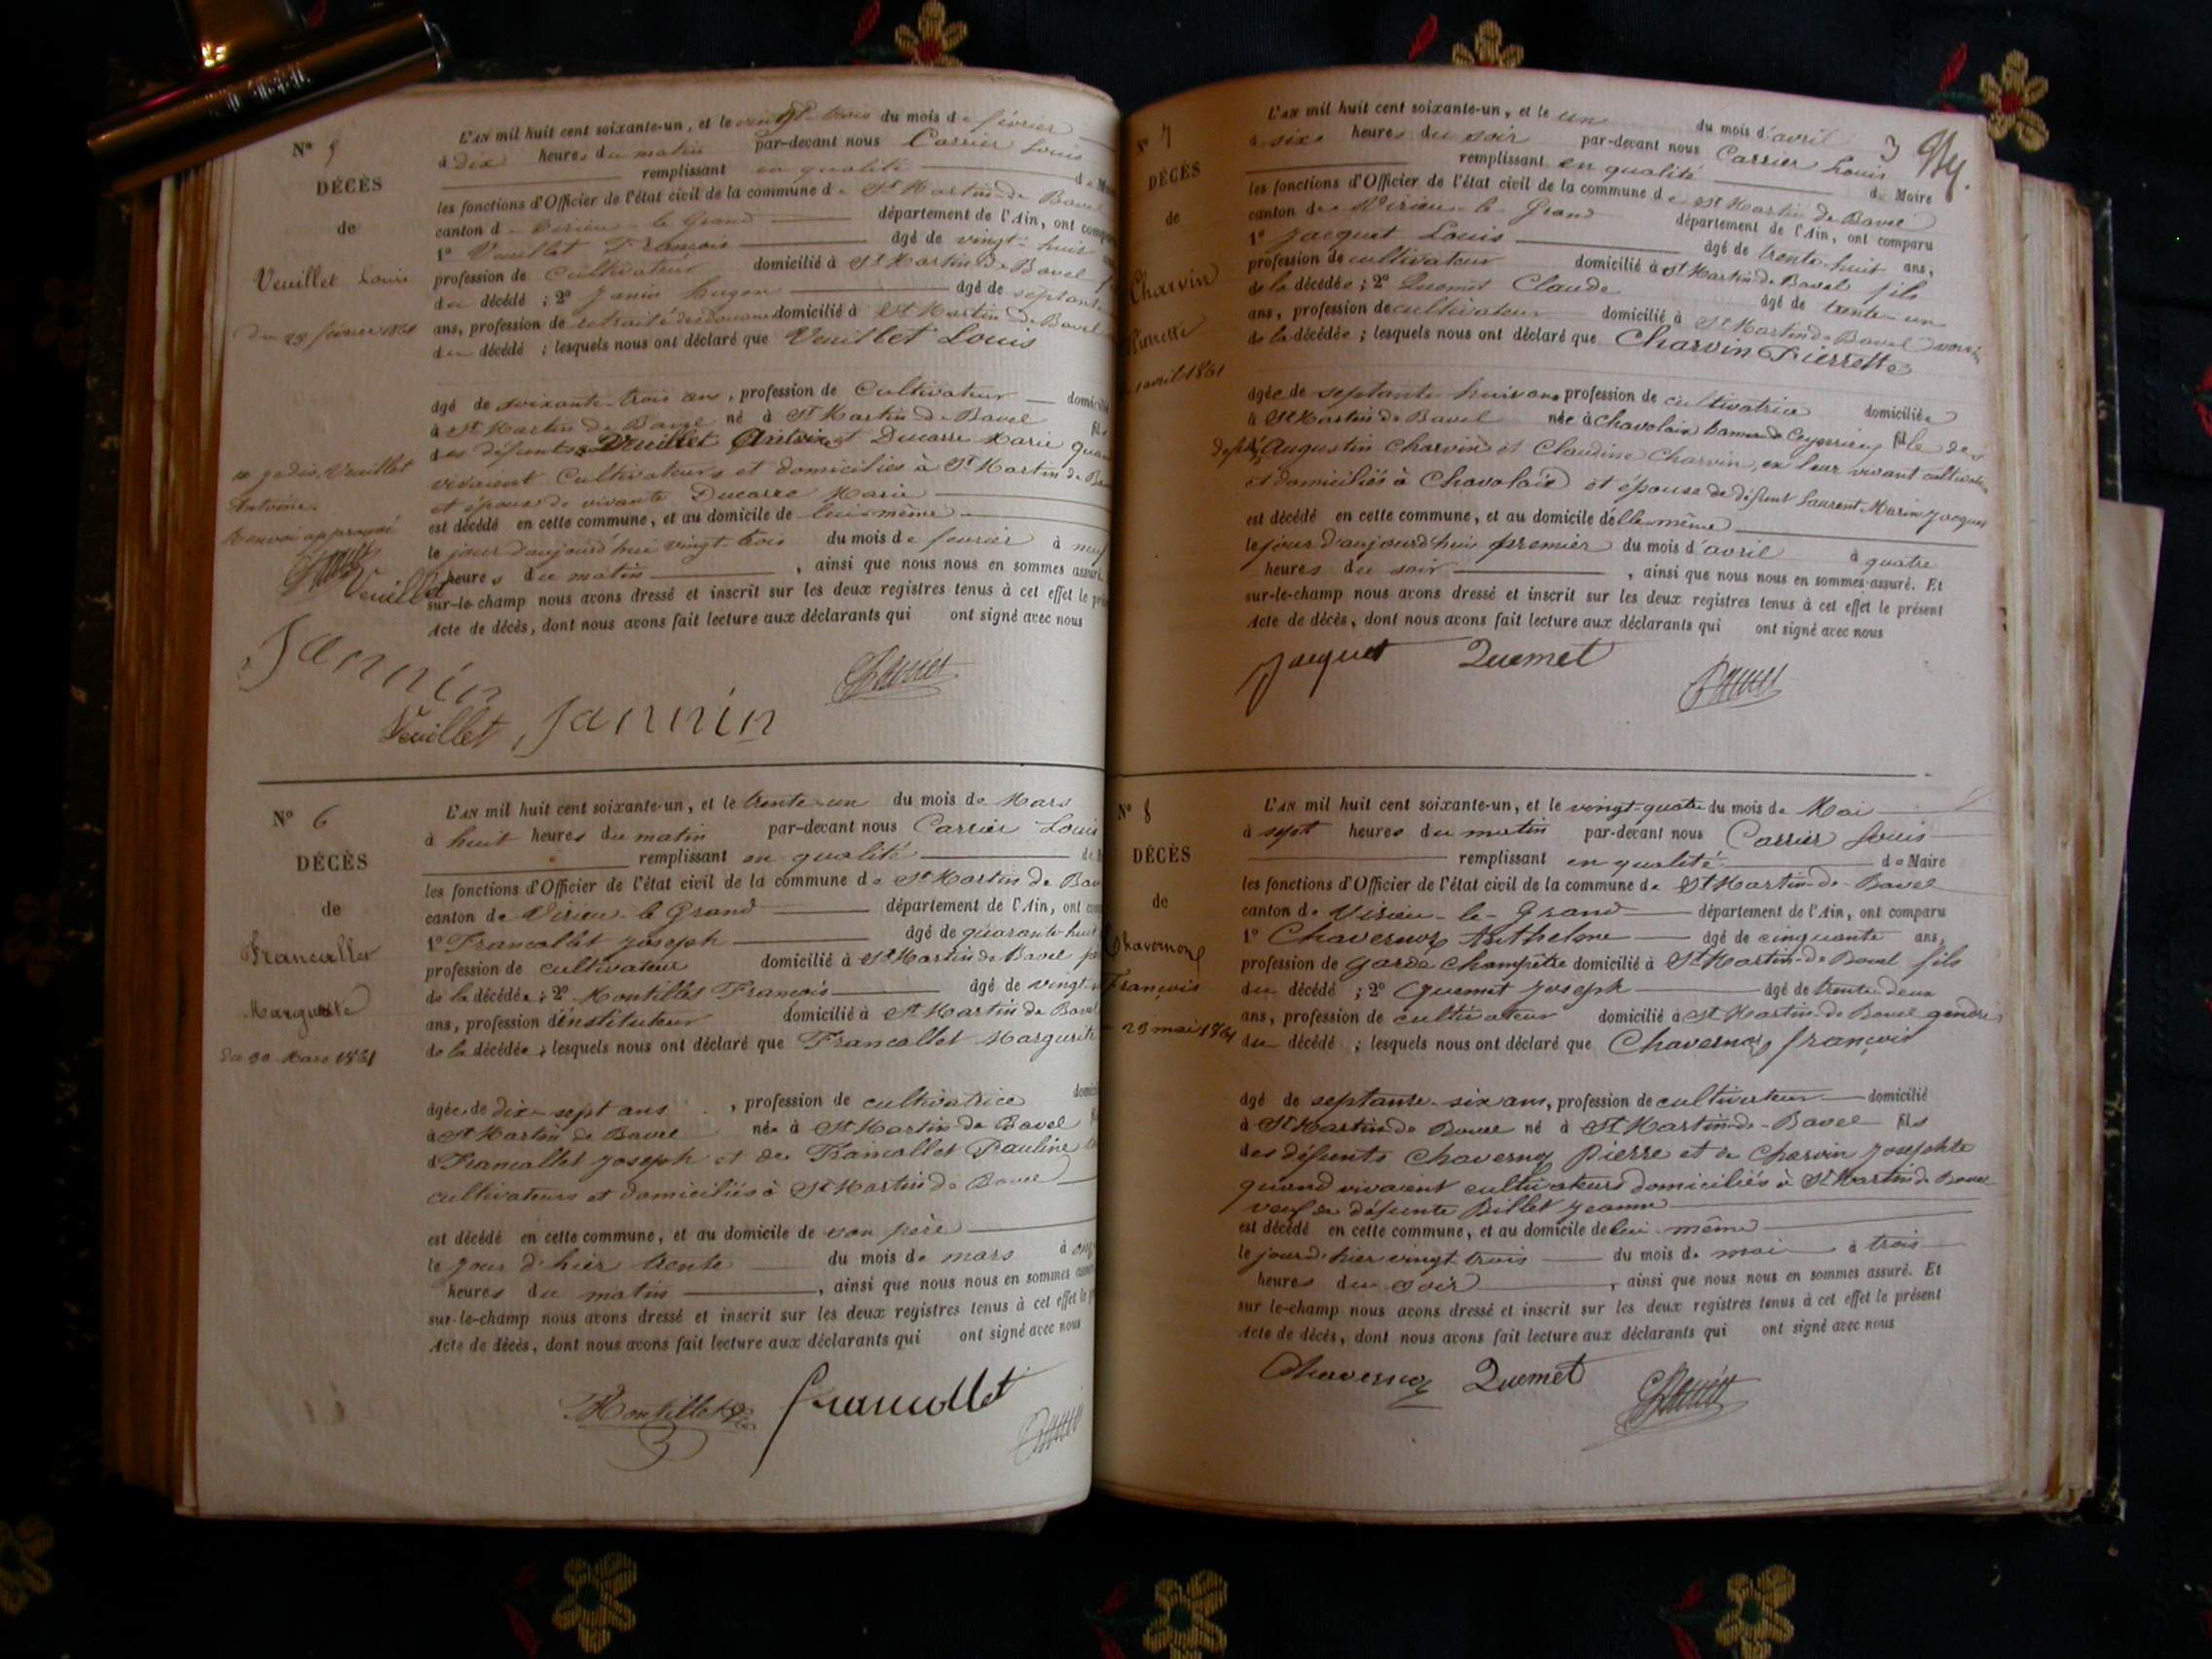 N° 5
DÉCÈS
de
Veuillet Louis
du 23 février 1861
L'AN mil huit cent soixante-un, et le vingt-trois du mois de février
à Dix heures du matin par-devant nous Carrier Louis
remplissant en qualité de
les fonctions d'Officier de l'état civil de la commune de St Martin de Bavel
canton de Virieu-le Grand département de l'Ain, ont
1° Veuillet François âgé de vingt-huit
profession de Cultivateur domicilié à St Martin de Bavel
du décédé ; 2° Janin âgé de septante
ans, profession de retraité des douanes domicilié à St Martin de Bavel
du décédé ; lesquels nous ont déclaré que Veuillet Louis
âgé de soixante-trois ans, profession de Cultivateur
à St Martin de Bavel né à St Martin de Bavel fils
des défunts Veuillet Antoine et Ducarre Marie
vivaient Cultivateurs et domiciliés à St Martin de
et époux de vivante Ducarre Marie
est décédé en cette commune, et au domicile de lui-même
le jour d'aujourd'hui vingt-trois du mois de fevrier à neuf
heures du matin , ainsi que nous nous en sommes assuré.
sur-le-champ nous avons dressé et inscrit sur les deux registres tenus à cet effet le
Acte de décès, dont nous avons fait lecture aux déclarants qui ont signé avec nous
Veuillet
Antoine.
Renvoi approuvé
Veuillet
Jannin
Veuillet Jannin
Carrier
N° 6
DÉCÈS
de
Francallet
Marguerite
du 30 Mars 1861
L'AN mil huit cent soixante-un, et le trente-un du mois de Mars
à huit heures du matin par-devant nous Carrier Louis
remplissant en qualité
les fonctions d'Officier de l'état civil de la commune de St Martin de
canton de Virieu-le Grand département de l'Ain, ont
1° Francallet Joseph âgé de quarante-huit
profession de cultivateur domicilié à St Martin de Bavel
de la décédée ; 2° Montillet François âgé de vingt
ans, profession d'instituteur domicilié à St Martin de Bavel
de la décédée ; lesquels nous ont déclaré que Francallet Margurite
âgée de dix-sept ans , profession de cultivatrice
à St Martin de Bavel née à St Martin de Bavel
d Francallet Joseph et de Francallet Pauline
cultivateurs et domiciliés à St Martin de Bavel
est décédé en cette commune, et au domicile de son père
le jour d'hier trente du mois de mars à
heures du matin , ainsi que nous nous en sommes
sur-le-champ nous avons dressé et inscrit sur les deux registres tenus à cet effet le
Acte de décès, dont nous avons fait lecture aux déclarants qui ont signé avec nous
Montillet Francollet
Carrier
N° 7
DÉCÈS
de
Charvin
Pierrette
1 avril 1861
3
L'AN mil huit cent soixante-un, et le un du mois d'avril
à sixe heures du soir par-devant nous Carrier Louis
remplissant en qualité de Maire
les fonctions d'Officier de l'état civil de la commune de St Martin de Bavel
canton de Virieu-le Grand département de l'Ain, ont comparu
1° Jacquet Louis âgé de trente-huit ans,
profession de cultivateur domicilié à St Martin de Bavel fils
de la décédée ; 2° Quemet Claude âgé de trente-un
ans, profession de cultivateur domicilié à St Martin de Bavel voisin
de la décédée ; lesquels nous ont déclaré que Charvin Pierrette
âgée de septante huit ans profession de cultivatrice domiciliée
à St Martin de Bavel née à Chavolaix fille des
Augustin Charvin et Claudine Charvin, en leur vivant
et domiciliés à Chavolaix et épouse de défunt Laurent Marin Jacquet
est décédé en cette commune, et au domicile d'elle-même
le jour d'aujourd'hui premier du mois d'avril à quatre
heures du soir , ainsi que nous nous en sommes assuré. Et
sur-le-champ nous avons dressé et inscrit sur les deux registres tenus à cet effet le présent
Acte de décès, dont nous avons fait lecture aux déclarants qui ont signé avec nous
Jacquet Quemet
Carrier
N° 8
DÉCÈS
de
Chavernoz
François
23 mai 1861
L'AN mil huit cent soixante-un, et le vingt-quatre du mois de Mai
à sept heures du matin par-devant nous Carrier Louis
remplissant en qualité de Maire
les fonctions d'Officier de l'état civil de la commune de St Martin-de-Bavel
canton de Virieu-le-Grand département de l'Ain, ont comparu
1° Chavernoz Anthelme âgé de cinquante ans,
profession de garde champêtre domicilié à St Martin-de-Bavel fils
du décédé ; 2° Quemet Joseph âgé de trente-deux
ans, profession de cultivateur domicilié à St Martin de Bavel gendre
du décédé ; lesquels nous ont déclaré que Chavernoz françois
âgé de septante-six ans, profession de cultivateur domicilié
à St Martin-de Bavel né à St Martin-de-Bavel fils
des défunts Chavernoz Pierre et de Charvin Josephte
quand vivaient cultivateurs domiciliés à St Martin de Bavel
veuf de défunte Billet Jeanne
est décédé en cette commune, et au domicile de lui-même
le jour d'hier vingt trois du mois de mai à trois
heures du soir , ainsi que nous nous en sommes assuré. Et
sur le-champ nous avons dressé et inscrit sur les deux registres tenus à cet effet le présent
Acte de décès, dont nous avons fait lecture aux déclarants qui ont signé avec nous
Chavernoz Quemet
Carrier